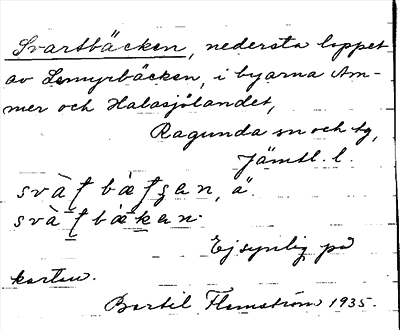 Svartbäcken, nedersta loppet
av Lemyrbäcken, i byarna Am-
mer och Halasjölandet,
Ragunda sn och tg,
Jämtl. l.
svàʃ bæʃʒan, ä.
svàʃ bækan.
Ej synlig på
kartan.
Bertil Flemström 1935.